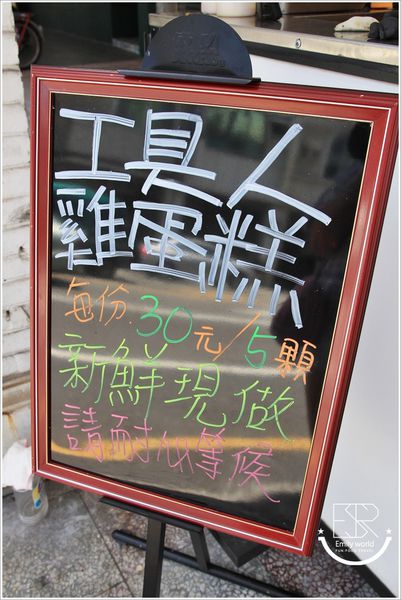 工具人
雞蛋糕
每份30元/5顆
新鮮現做
請耐心等候
ESR
Emily world
FUN.FOOD.TRAVEL